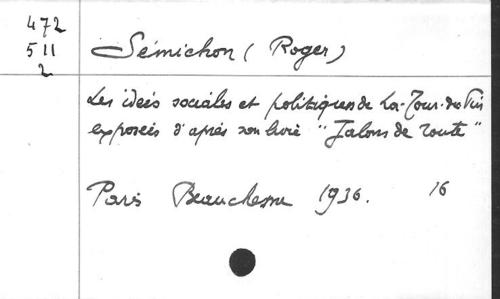 472
511
2
Sémichon (Roger)
Les idées sociales et politiques de La-Tour-du Pin
exposées d'après son livre "Jalons de route"
Paris Beauchesne 1936. 16